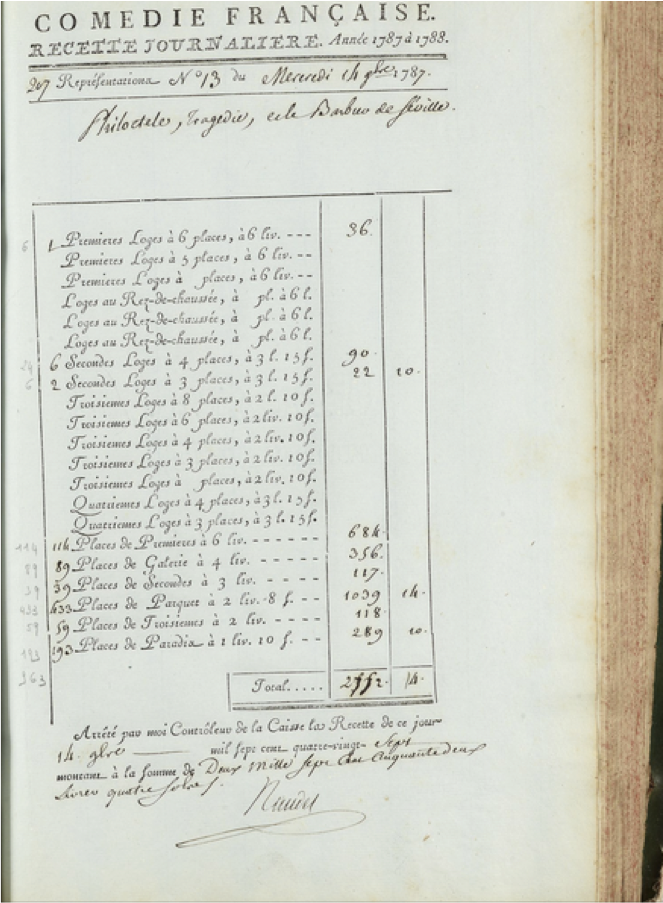 COMEDIE FRANÇAISE.
RECETTE JOURNALIERE. Année 1787 à 1788.
207 Représentationa N.º 13 du Mercredi 14 9bre 1787.
Philoctete, Tragedie, et le Barbier de Séville.
6 1 Premieres Loges à 6 places, à 6 liv. --- 36.
Premieres Loges à 5 places, à 6 liv. --
Premieres Loges à places, à 6 liv. --
Loges au Rez-de-chaussée, à pl. à 6 l.
Loges au Rez-de-chaussée, à pl. à 6 l.
Loges au Rez-de-chaussée, à pl. à 6 l.
24 6 Secondes Loges à 4 places, à 3 l. 15 ſ. 90.
6 2 Secondes Loges à 3 places, à 3 l. 15 ſ. 22 10.
Troisiemes Loges à 8 places, à 2 l. 10 ſ.
Troisiemes Loges à 6 places, à 2 liv. 10 ſ.
Troisiemes Loges à 4 places, à 2 liv. 10 ſ.
Troisiemes Loges à 3 places, à 2 liv. 10 ſ.
Troisiemes Loges à places, à 2 liv. 10 ſ.
Quatriemes Loges à 4 places, à 3 l. 15 ſ.
Quatriemes Loges à 3 places, à 3 l. 15 ſ.
114 114 Places de Premieres à 6 liv. ------ 684.
89 89 Places de Galerie à 4 liv. ----- 356.
39 39 Places de Secondes à 3 liv. ----- 117.
433 433 Places de Parquet à 2 liv. 8 ſ. --- 1039 14.
59 59 Places de Troisiemes à 2 liv. ---- 118.
193 193 Places de Paradis à 1 liv. 10 ſ. --- 289 10.
963
Total..... 2752. 14.
Arrêté par moi Contrôleur de la Caisse la Recette de ce jour
14. 9bre mil sept cent quatre-vingt- Sept
montant à la somme de Deux Mille sept Cent Cinquante deux
Livres quatre sols.